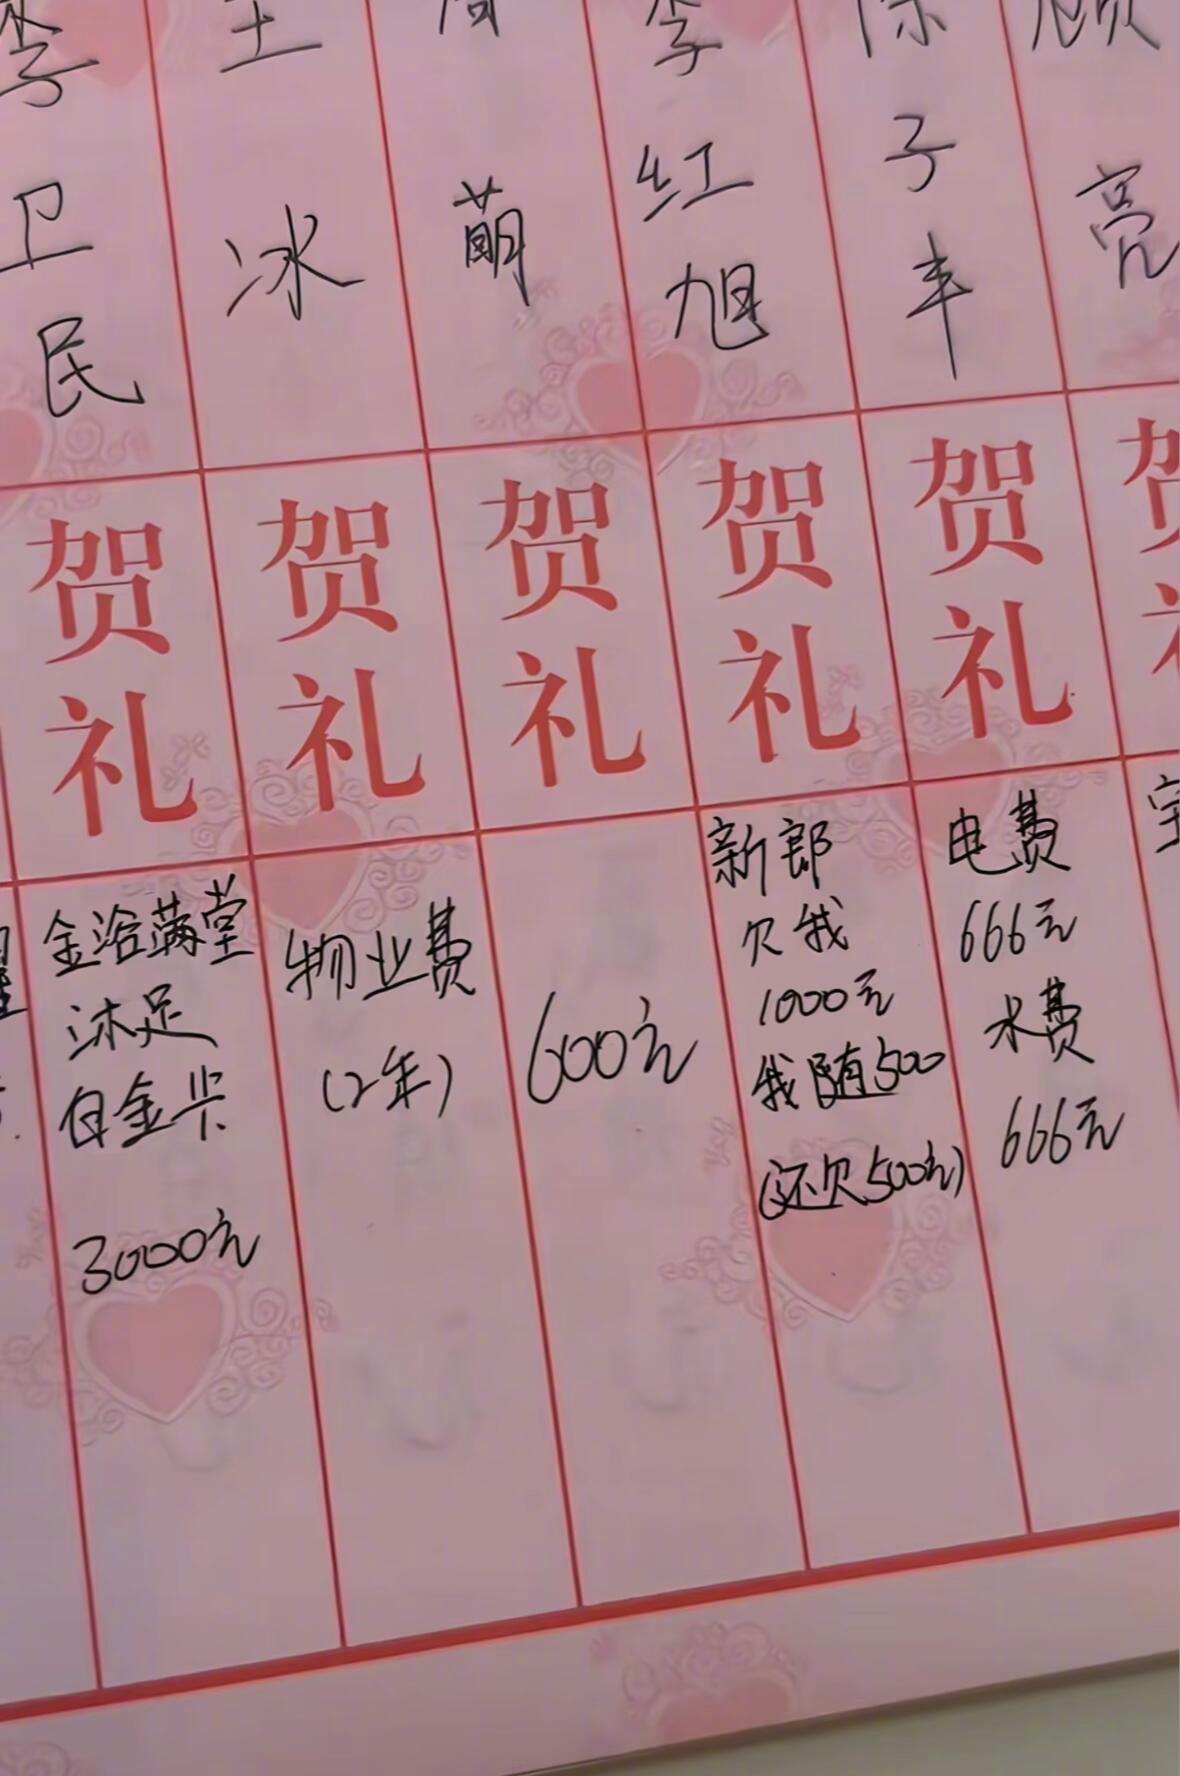 李卫民
王冰
萌
李红旭
子丰
顾亮
贺礼
贺礼
贺礼
贺礼
贺礼
贺礼
金浴满堂
沐足
白金卡
3000元
物业费
(2年)
600元
新郎
欠我
1000元
我随500
(还欠500元)
电费
666元
水费
666元